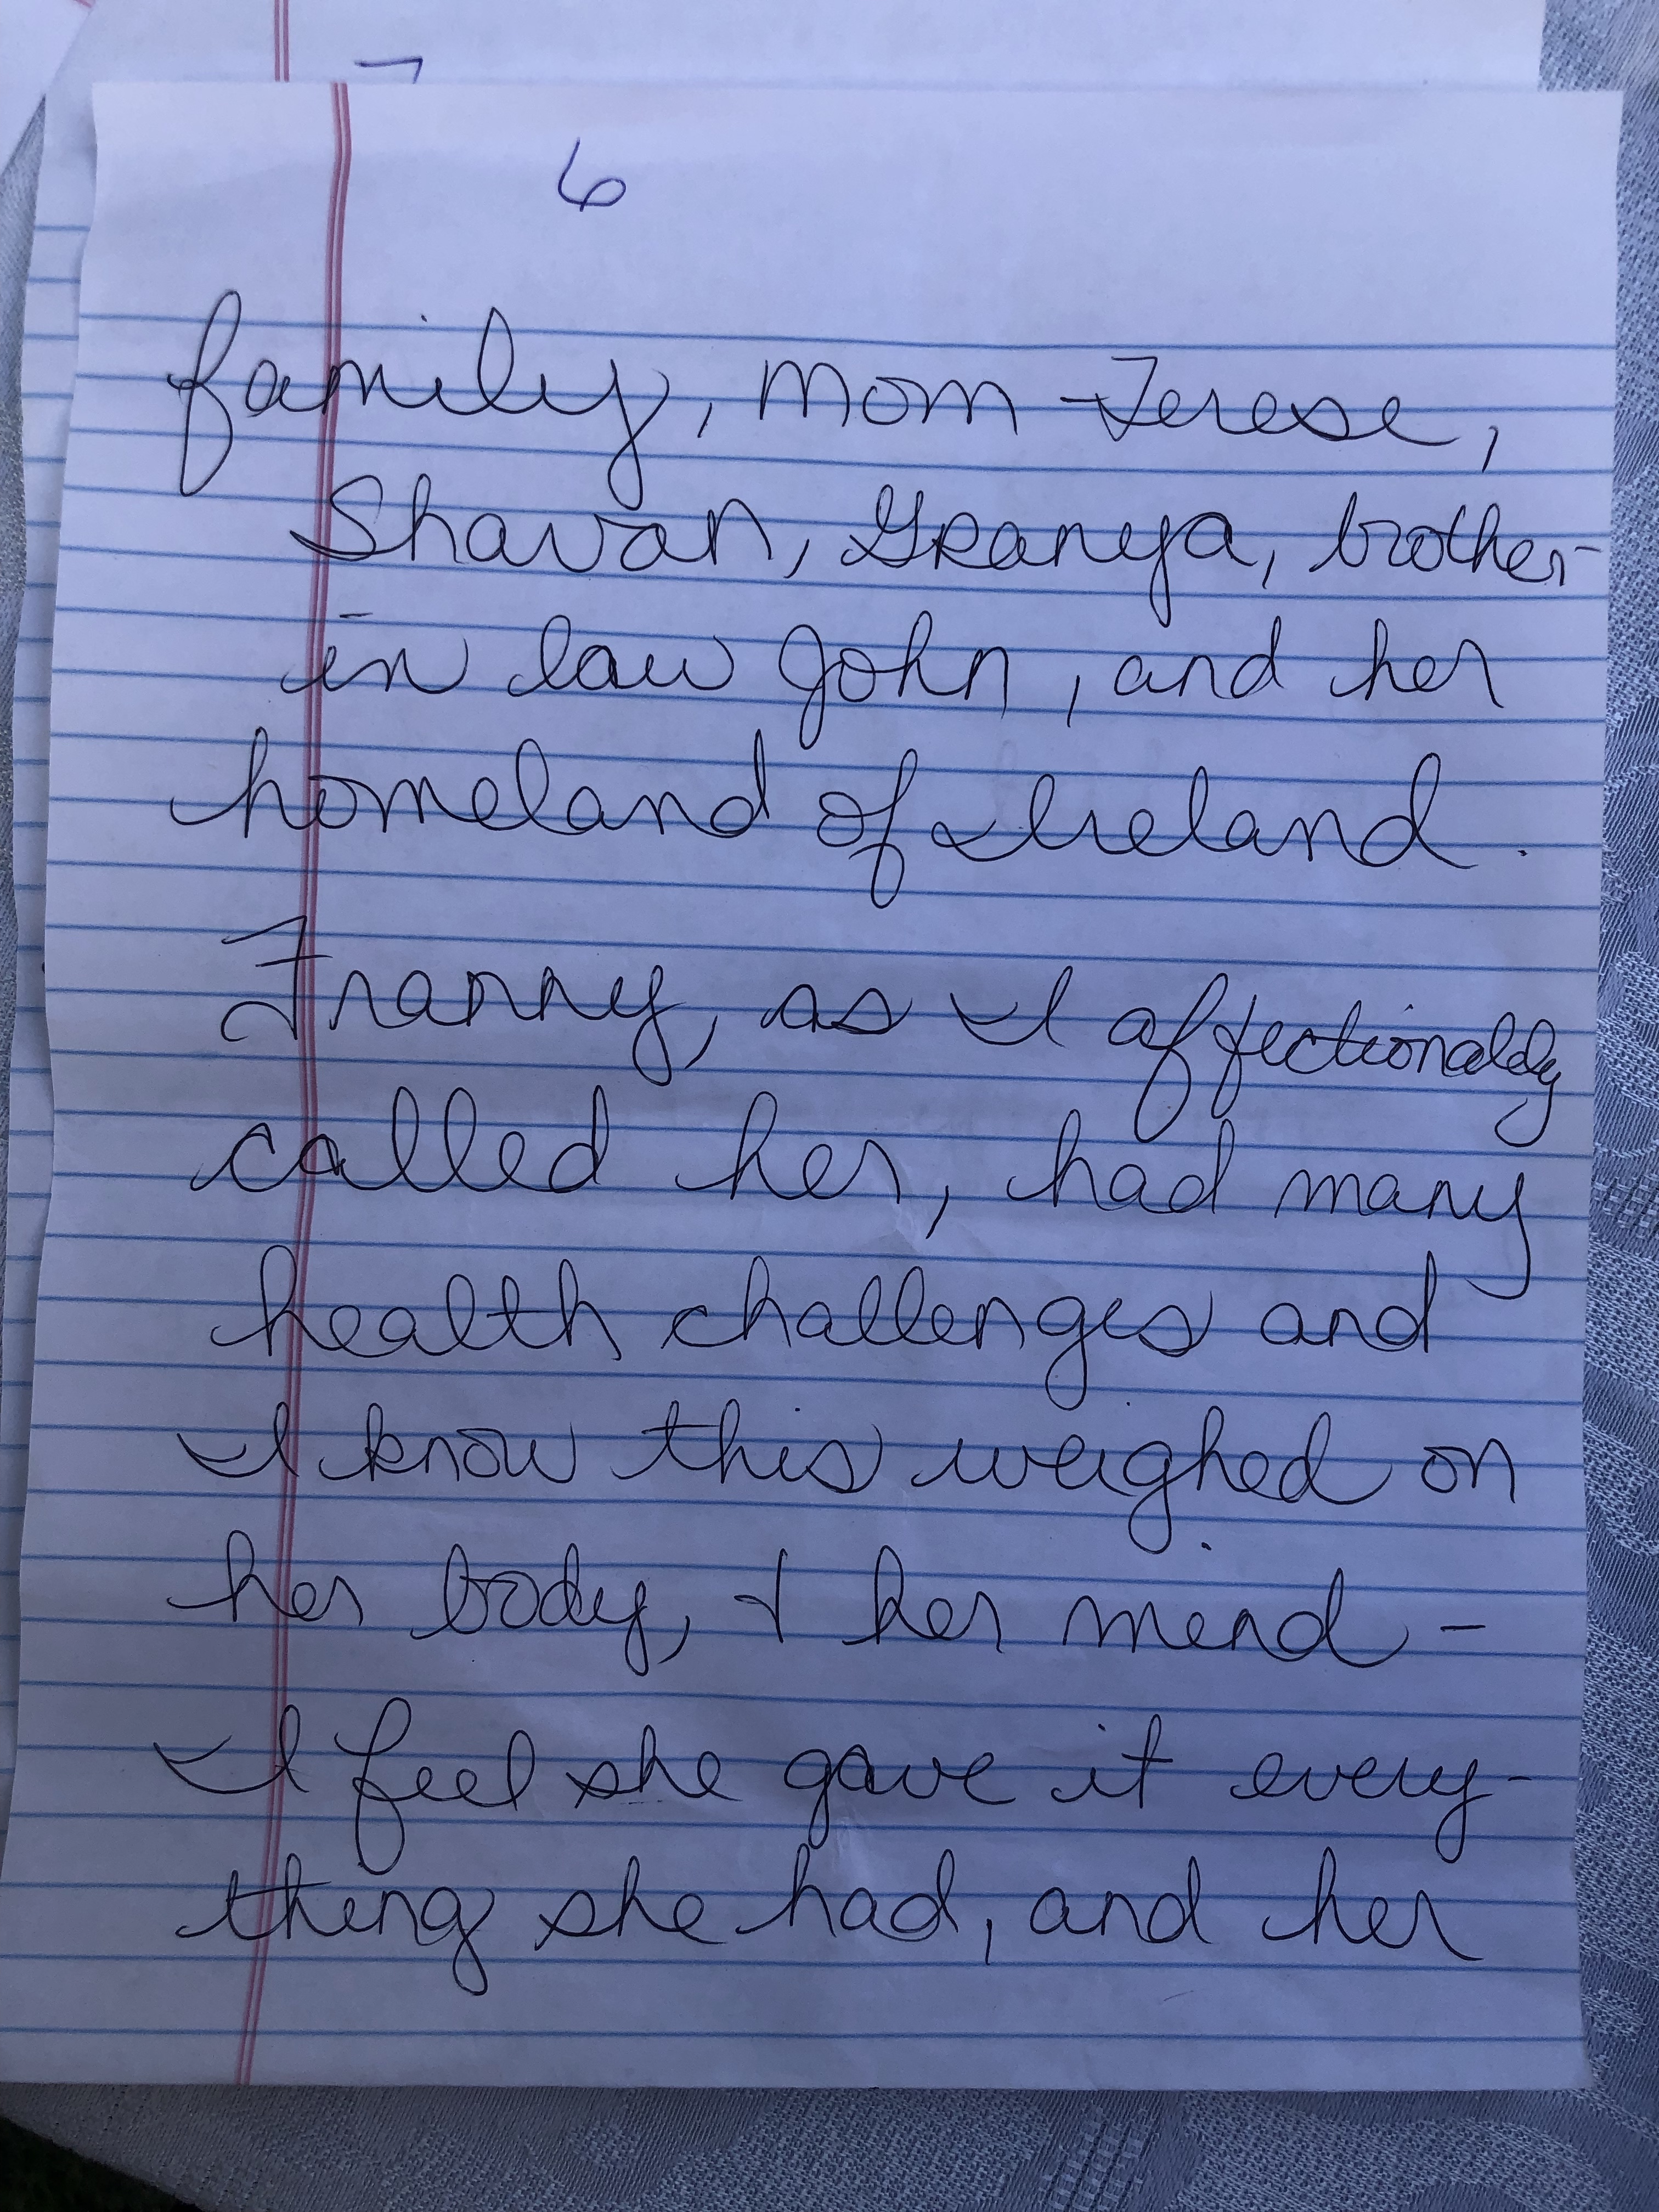 7
6
family, Mom - Terese,
Shavan, Granya, brother-
in law John, and her
homeland of Ireland.
Franny, as I affectionaldy
called her, had many
health challenges and
I know this weighed on
her body, & her mind -
I feel she gave it every-
thing she had, and her